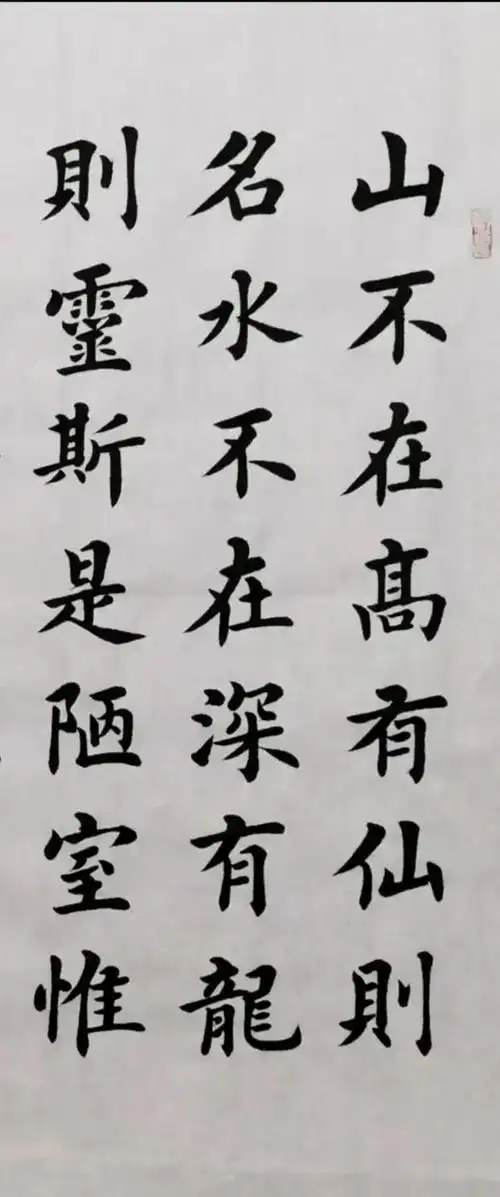 山不在髙有仙則
名水不在深有龍
則靈斯是陋室惟